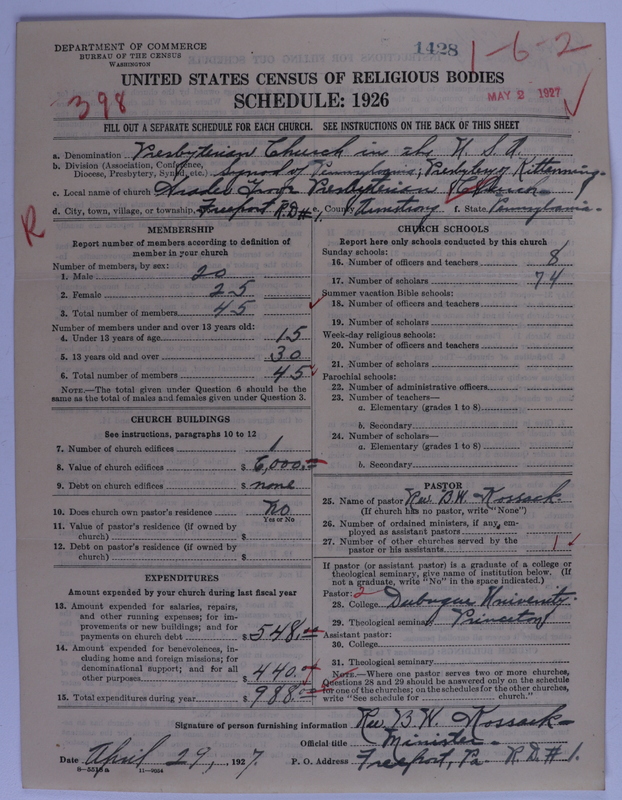 DEPARTMENT OF COMMERCE
BUREAU OF THE CENSUS
WASHINGTON
1428
1-6-2
UNITED STATES CENSUS OF RELIGIOUS BODIES
398
SCHEDULE: 1926
MAY 2 1927
FILL OUT A SEPARATE SCHEDULE FOR EACH CHURCH. SEE INSTRUCTIONS ON THE BACK OF THIS SHEET
a. Denomination Presbyterian Church in the U.S.A.
b. Division (Association, Conference, Diocese, Presbytery, Synod, etc.) Synod of Pennsylvania, Presbytery Kittanning.
c. Local name of church Presbyterian Church
d. City, town, village, or township, Freeport R.D.#1. e. County Armstrong f. State Pennsylvania.
R
MEMBERSHIP
Report number of members according to definition of member in your church
Number of members, by sex:
1. Male 20
2. Female 25
3. Total number of members 45
Number of members under and over 13 years old:
4. Under 13 years of age 15
5. 13 years old and over 30
6. Total number of members 45
NOTE.—The total given under Question 6 should be the same as the total of males and females given under Question 3.
CHURCH BUILDINGS
See instructions, paragraphs 10 to 12
7. Number of church edifices 1
8. Value of church edifices $ 6,000.=
9. Debt on church edifices $ none
10. Does church own pastor's residence no
Yes or No
11. Value of pastor's residence (if owned by church) $
12. Debt on pastor's residence (if owned by church) $
EXPENDITURES
Amount expended by your church during last fiscal year
13. Amount expended for salaries, repairs, and other running expenses; for improvements or new buildings; and for payments on church debt $ 548.=
14. Amount expended for benevolences, including home and foreign missions; for denominational support; and for all other purposes $ 440.
15. Total expenditures during year $ 988.=
CHURCH SCHOOLS
Report here only schools conducted by this church
Sunday schools:
16. Number of officers and teachers 8
17. Number of scholars 74
Summer vacation Bible schools:
18. Number of officers and teachers
19. Number of scholars
Week-day religious schools:
20. Number of officers and teachers
21. Number of scholars
Parochial schools:
22. Number of administrative officers
23. Number of teachers—
a. Elementary (grades 1 to 8)
b. Secondary
24. Number of scholars—
a. Elementary (grades 1 to 8)
b. Secondary
PASTOR
25. Name of pastor Rev. B.W. Kossack
(If church has no pastor, write "None")
26. Number of ordained ministers, if any, employed as assistant pastors
27. Number of other churches served by the pastor or his assistants 1
If pastor (or assistant pastor) is a graduate of a college or theological seminary, give name of institution below. (If not a graduate, write "No" in the space indicated.)
Pastor: 2
28. College Dubuque University.
29. Theological seminary Princeton
Assistant pastor:
30. College
31. Theological seminary
NOTE.—Where one pastor serves two or more churches, Questions 28 and 29 should be answered only on the schedule for one of the churches; on the schedules for the other churches, write "See schedule for church."
Signature of person furnishing information Rev. B.W. Kossack
Official title Minister
Date April 29, 1927. P. O. Address Freeport, Pa. R.D.#1.
8-5518a 11-9034